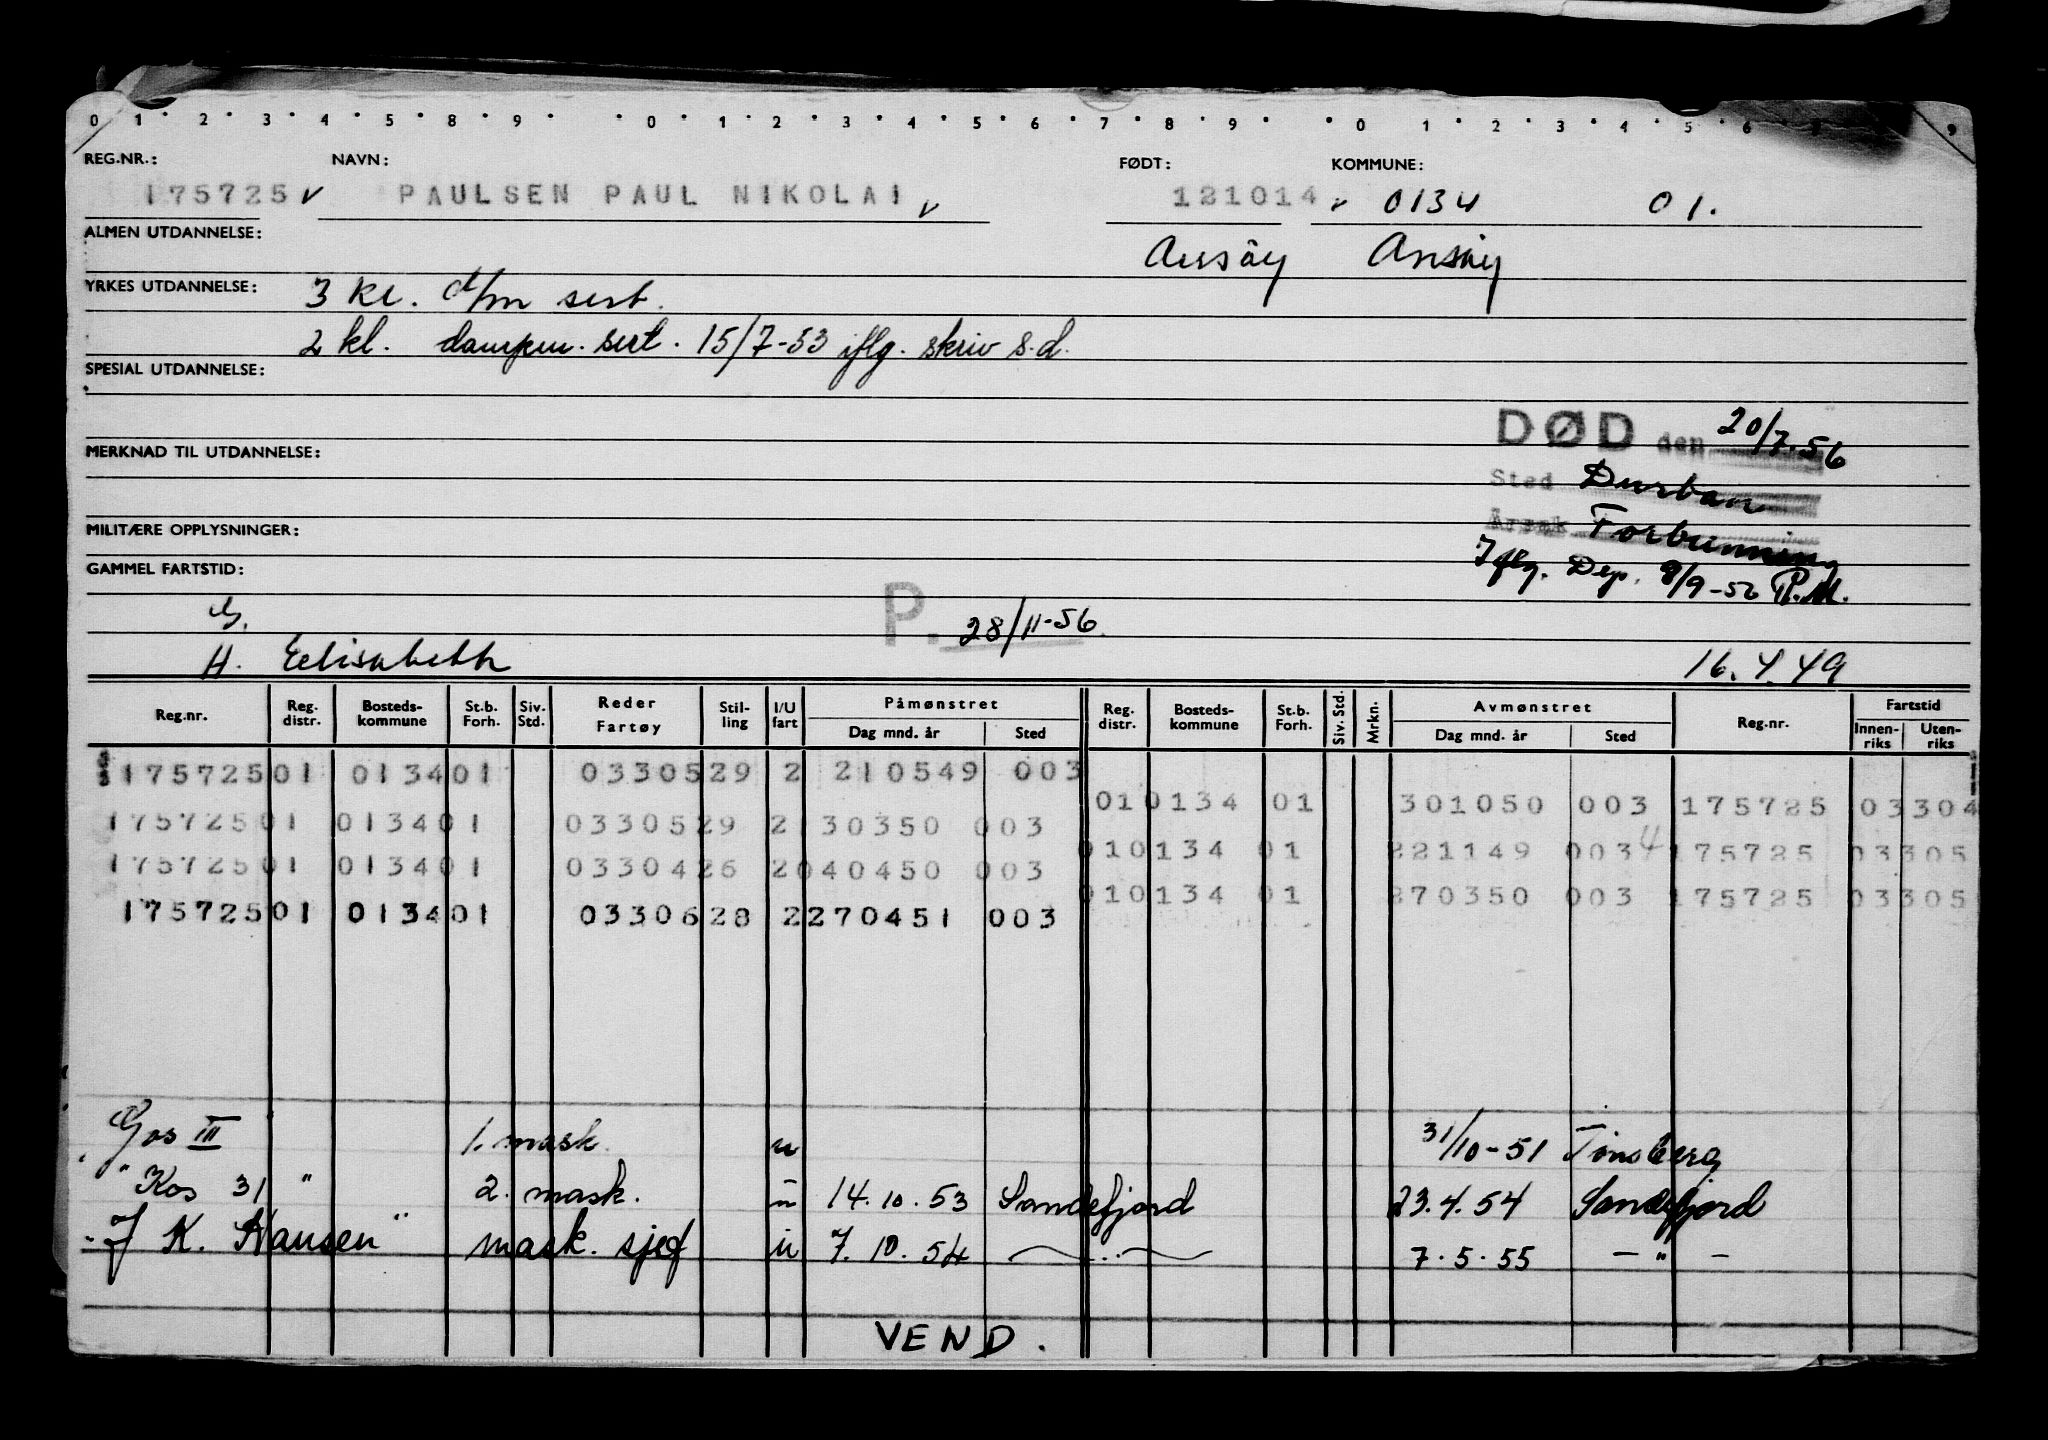 0 1 2 3 4 5 8 9 0 1 2 3 4 5 6 7 8 9 0 1 2 3 4 5 6 9
REG.NR.: NAVN: FØDT: KOMMUNE:
175725 v PAULSEN PAUL NIKOLAI v 121014 v 0134 01.
ALMEN UTDANNELSE:
YRKES UTDANNELSE: 3 kl. d/m sert.
2 kl. dampm. sert. 15/7-53 iflg. skriv s.d.
SPESIAL UTDANNELSE:
DØD den 20/7.56
MERKNAD TIL UTDANNELSE:
Sted Durban
MILITÆRE OPPLYSNINGER:
Årsak Forbrenning
Iflg. Dep. 8/9-56 P.M.
GAMMEL FARTSTID:
G.
P. 28/11-56
H. Elisabeth 16.4.49
Reg.nr. Reg. distr. Bosteds-kommune St.b. Forh. Siv. Std. Reder Fartøy Stil-ling I/U fart Påmønstret Dag mnd. år Sted Reg. distr. Bosteds-kommune St.b. Forh. Siv. Std. Mrkn. Avmønstret Dag mnd. år Sted Reg.nr. Fartstid Innen-riks Uten-riks
17572501 013401 0330529 2 210549 003
010134 01 301050 003 175725 03304
17572501 013401 0330529 2 30350 003
010134 01 221149 003 4 175725 03305
17572501 013401 0330426 2040450 003
010134 01 270350 003 175725 03305
17572501 013401 0330628 2270451 003
Gos III 1. mask. u 31/10-51 Tønsberg
"Kos 31" 2. mask. u 14.10.53 Sandefjord 23.4.54 Sandefjord
"J K. Hansen" mask. sjef u 7.10.54 — " — 7.5.55 — " —
VEND.